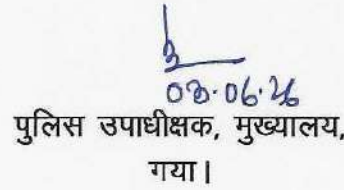 03.06.26
पुलिस उपाधीक्षक, मुख्यालय,
गया।